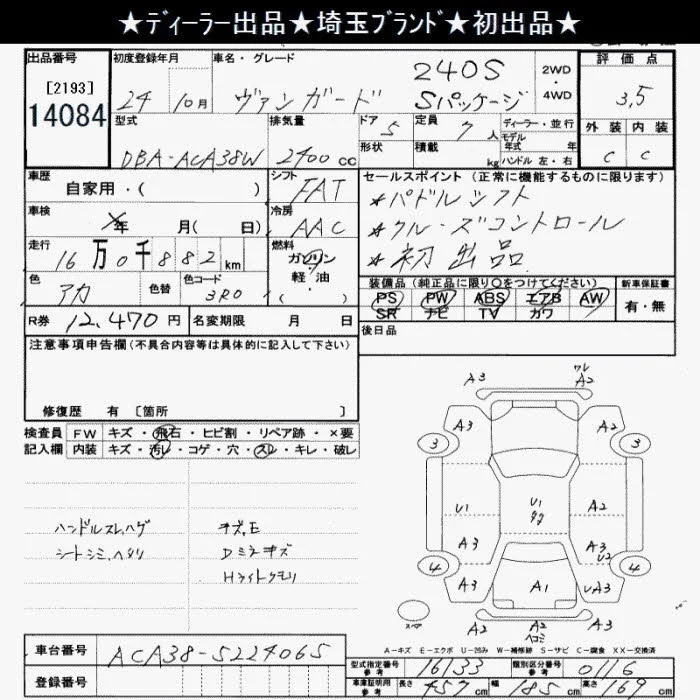 ★ディーラー出品★埼玉ブランド★初出品★
出品番号 初度登録年月 車名・グレード 240S 2WD 評価点
[2193] 24 10月 ヴァンガード Sパッケージ 4WD 3.5
14084 型式 排気量 ドア 5 定員 7人 ディーラー・並行 外装 内装
DBA-ACA38W 2400cc 形状 積載 kg モデル年式 年 C C
ハンドル左・右
車歴 自家用・( ) シフト FAT セールスポイント(正常に機能するものに限ります)
車検 年 月( 日) 冷房 AAC ★パドルシフト
走行 16万0千882km 燃料 ガソリン ★クルーズコントロール
色 アカ 色替 色コード 3R0 軽・油 ( ) ★初出品
装備品(純正品に限り○をつけてください) 新車保証書
PS PW ABS エアB AW 有・無
SR ナビ TV カワ
R券 12,470円 名変期限 月 日 後日品
注意事項申告欄(不具合内容等は具体的に記入して下さい)
修復歴 有 [箇所 ]
検査員 FW キズ・飛石・ヒビ割・リペア跡・×要
記入欄 内装 キズ・汚レ・コゲ・穴・スレ・キレ・破レ
ハンドルスレ、ハゲ キズ、E
シートシミ、ヘタリ Dミラーキズ
Hライトクモリ
A3 ワレ A2
A3 A2
3 3
U1 U1 A2
A3 A3 U2
4 4
A3 A1 UA3
スペア A2 A2 ヘコミ A3
A-キズ E-エクボ U-凹み W-補修跡 S-サビ C-腐食 XX-交換済
車台番号 ACA38-5224065
登録番号
型式指定番号 参考 16133 類別区分番号 参考 0116
車庫証明用 参考 長さ 457cm 幅 185cm 高さ 169cm